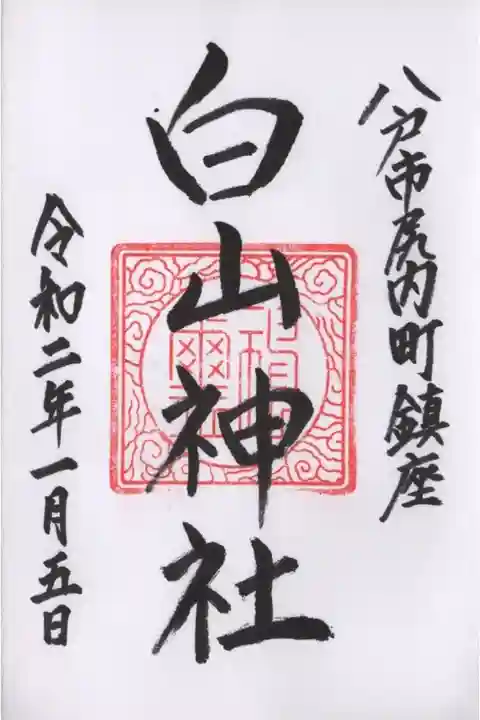 八戸市尻内町鎮座
白山神社
令和二年一月五日